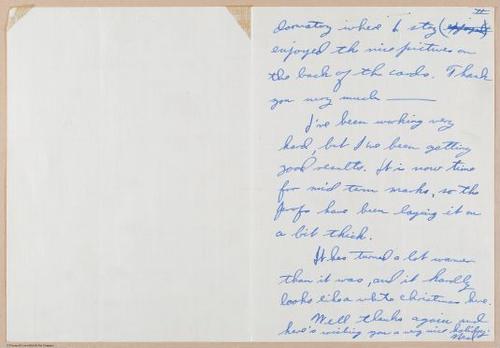 II
dormatory where I stay (enjoyed)
enjoyed the nice pictures on
the back of the cards. Thank
you very much ———
I've been working very
hard, but I've been getting
good results. It is now time
for mid term marks, so the
profs have been laying it on
a bit thick.
It has turned a lot warmer
than it was, and it hardly
looks like a white christmas here.
Well thanks again and
here's wishing you a very nice holiday.